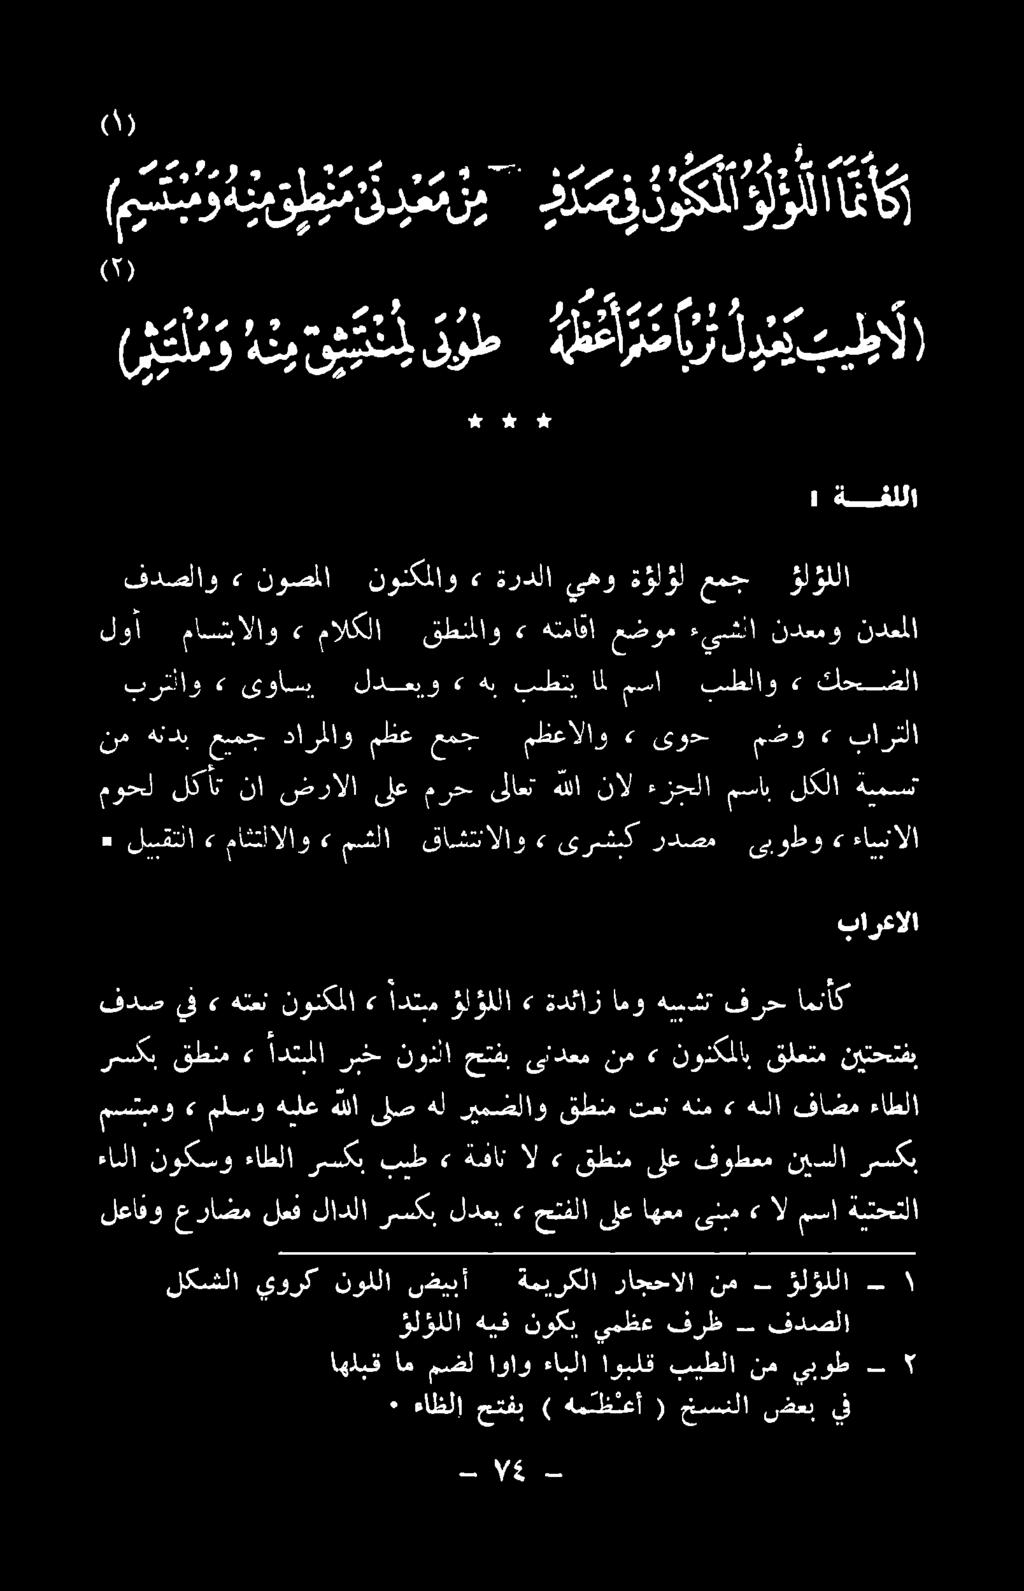 (١)
(كَأَنَّمَا اللُّؤْلُؤُ الْمَكْنُونُ فِي صَدَفٍ مِنْ مَعْدِنَيْ مَنْطِقٍ مِنْهُ وَمُبْتَسِمِ)
(٢)
(لَا طِيبَ يَعْدِلُ تُرْبًا ضَمَّ أَعْظُمَهُ طُوبَى لِمُنْتَشِقٍ مِنْهُ وَمُلْتَثِمِ)
★ ★ ★
اللغــة :
اللؤلؤ جمع لؤلؤة وهي الدرة ، والمكنون المصون ، والصدف
المعدن ومعدن الشيء موضع اقامته ، والمنطق الكلام ، والابتسام أول
الضـحك ، والطيب اسم لما يتطيب به ، ويعـدل يساوى ، والترب
التراب ، وضم حوى ، والاعظم جمع عظم والمراد جميع بدنه من
تسمية الكل باسم الجزء لان الله تعالى حرم على الارض ان تأكل لحوم
الانبياء ، وطوبى مصدر كبشرى ، والانتشاق الشم ، والالتثام ، التقبيل .
الاعراب
كأنما حرف تشبيه وما زائدة ، اللؤلؤ مبتدأ ، المكنون نعته ، في صدف
بفتحتين متعلق بالمكنون ، من معدنى بفتح النون خبر المبتدأ ، منطق بكسر
الطاء مضاف اليه ، منه نعت منطق والضمير له صلى الله عليه وسلم ، ومبتسم
بكسر السين معطوف على منطق ، لا نافية ، طيب بكسر الطاء وسكون الياء
التحتية اسم لا ، مبنى معها على الفتح ، يعدل بكسر الدال فعل مضارع وفاعل
١ – اللؤلؤ – من الاحجار الكريمة أبيض اللون كروي الشكل
الصدف – ظرف عظمي يكون فيه اللؤلؤ
٢ – طوبي من الطيب قلبوا الياء واوا لضم ما قبلها
في بعض النسخ ( أعظَمه ) بفتح الظاء .
– ٧٤ –